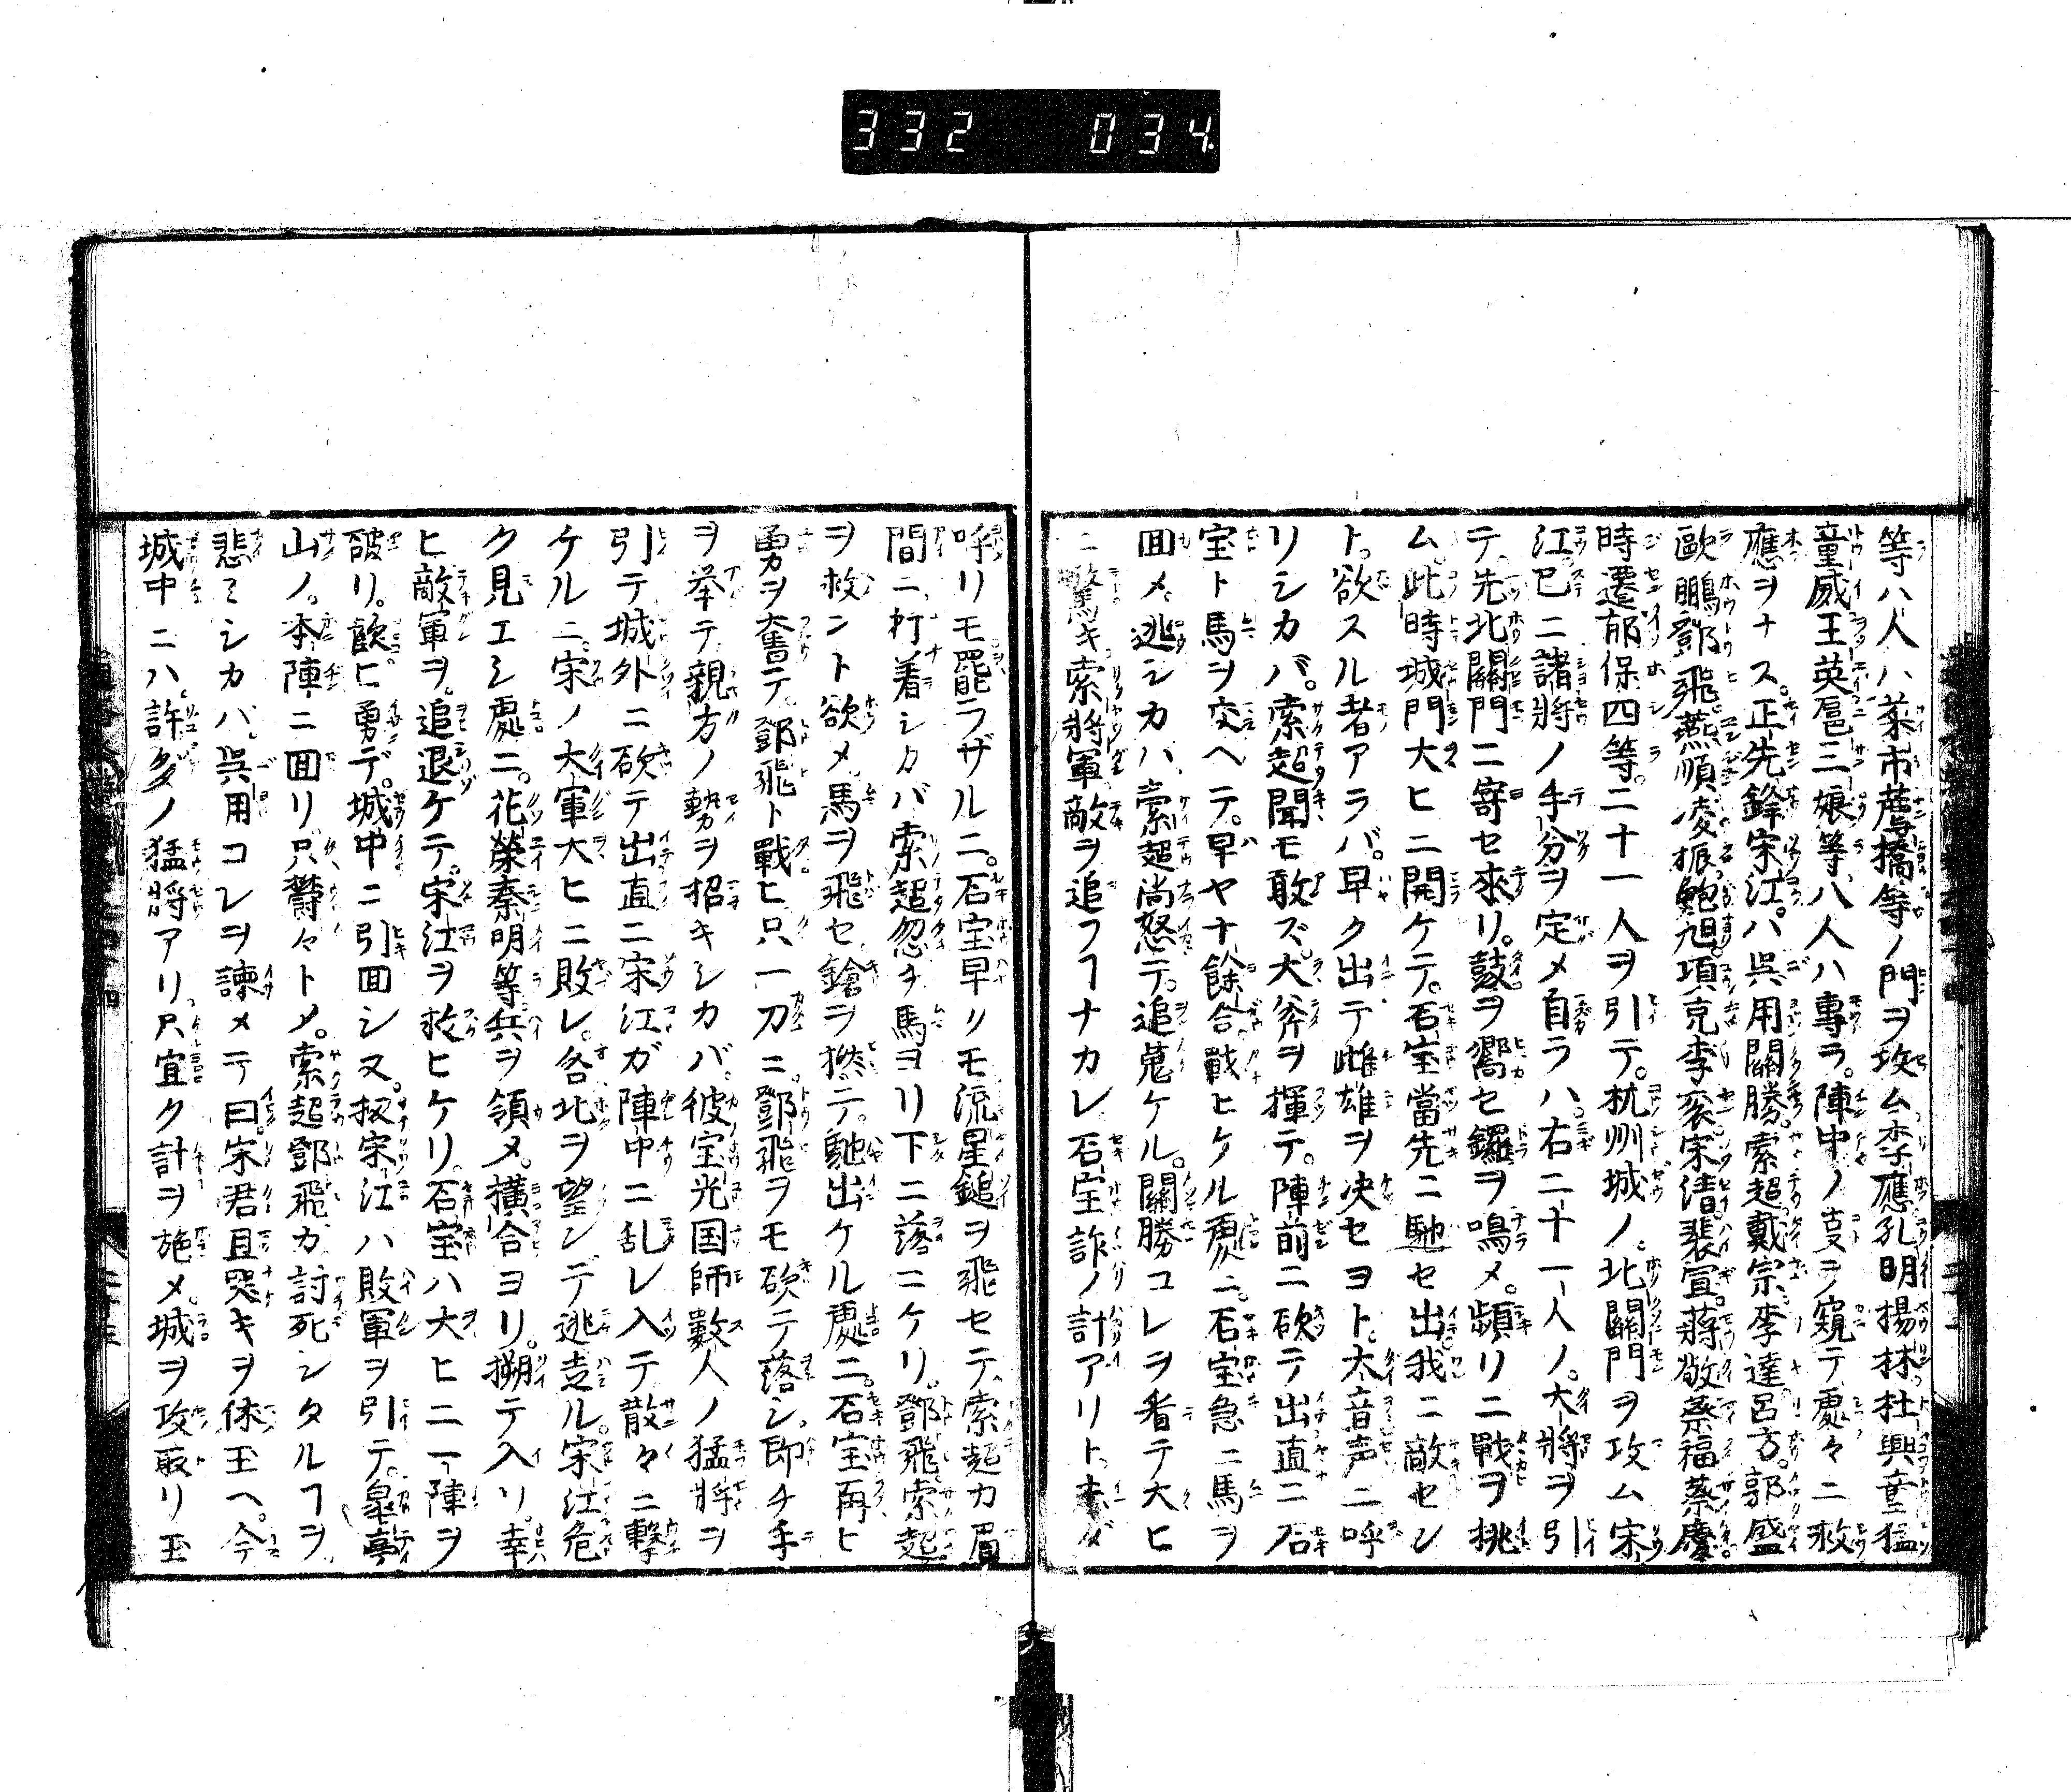 332 034
等ハ人ハ菜市薦橋等ノ門ヲ攻ム李應孔明揚林杜興童猛
童威王英扈三娘等八人ハ專ラ陣中ノ支ヲ窺テ處々ニ救
應ヲナス正先鋒宋江ハ呉用關勝索超戴宗李逵呂方郭盛
歐鵬鄧飛燕順凌振鮑旭項充李袞宋清裴宣蔣敬蔡福蔡慶
時遷郁保四等二十一人ヲ引テ杭州城ノ北關門ヲ攻ム宋
江已ニ諸將ノ手分ヲ定メ自ラハ右二十一人ノ大將ヲ引
テ先北關門ニ寄セ來リ鼓ヲ響セ鑼ヲ鳴メ頻リニ戰ヲ挑
ム此時城門大ヒニ開ケテ石宝當先ニ馳セ出我ニ敵セン
ト欲スル者アラバ早ク出テ雌雄ヲ决セヨト太音声ニ呼
リシカバ索超聞モ敢ズ大斧ヲ揮テ陣前ニ砍テ出直ニ石
宝ト馬ヲ交ヘテ早ヤ十餘合戰ヒケル處ニ石宝急ニ馬ヲ
囬メ逃シカハ索超尚怒テ追蒐ケル關勝コレヲ看テ大ヒ
ニ驚キ索將軍敵ヲ追フヿナカレ石宝詐ノ計アリト未ダ
呼リモ罷ラザルニ石宝早リモ流星鎚ヲ飛セテ索超カ眉
間ニ打着シカバ索超忽チ馬ヨリ下ニ落ニケリ鄧飛索超
ヲ救ント欲メ馬ヲ飛セ鎗ヲ撚テ馳出ケル處ニ石宝再ヒ
勇カヲ奮テ鄧飛ト戰ヒ只一刀ニ鄧飛ヲモ砍テ落シ即チ手
ヲ挙テ親方ノ勢ヲ招キシカバ彼宝光国師數人ノ猛將ヲ
引テ城外ニ砍テ出直ニ宋江ガ陣中ニ乱レ入テ散々ニ擊
ケルニ宋ノ大軍大ヒニ敗レ各北ヲ望ンデ逃走ル宋江危
ク見エシ處ニ花榮秦明等兵ヲ領メ横合ヨリ搠テ入リ幸
ヒ敵軍ヲ追退ケテ宋江ヲ救ヒケリ石宝ハ大ヒニ一陣ヲ
破リ歓ヒ勇デ城中ニ引囬シヌ扨宋江ハ敗軍ヲ引テ皐亭
山ノ本陣ニ囬リ只欝々トメ索超鄧飛カ討死シタルヿヲ
悲ミシカバ呉用コレヲ諫メテ曰宋君且哭キヲ休玉ヘ今
城中ニハ許多ノ猛將アリ只宜ク計ヲ施メ城ヲ攻取リ玉